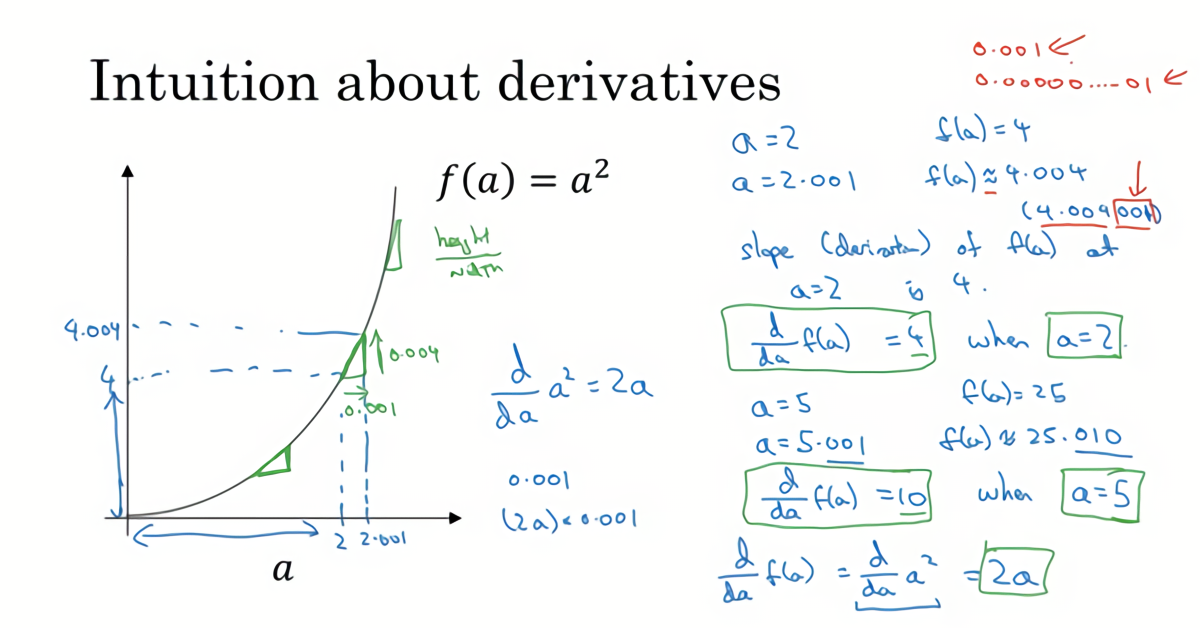 Intuition about derivatives
0.001
0.00000....01
f(a) = a²
height
width
4.004
4
0.004
0.001
2 2.001
a
d/da a² = 2a
0.001
(2a) × 0.001
a = 2 f(a) = 4
a = 2.001 f(a) ≈ 4.004
(4.004001)
slope (derivative) of f(a) at
a = 2 is 4.
d/da f(a) = 4 when a = 2.
a = 5 f(a) = 25
a = 5.001 f(a) ≈ 25.010
d/da f(a) = 10 when a = 5
d/da f(a) = d/da a² = 2a